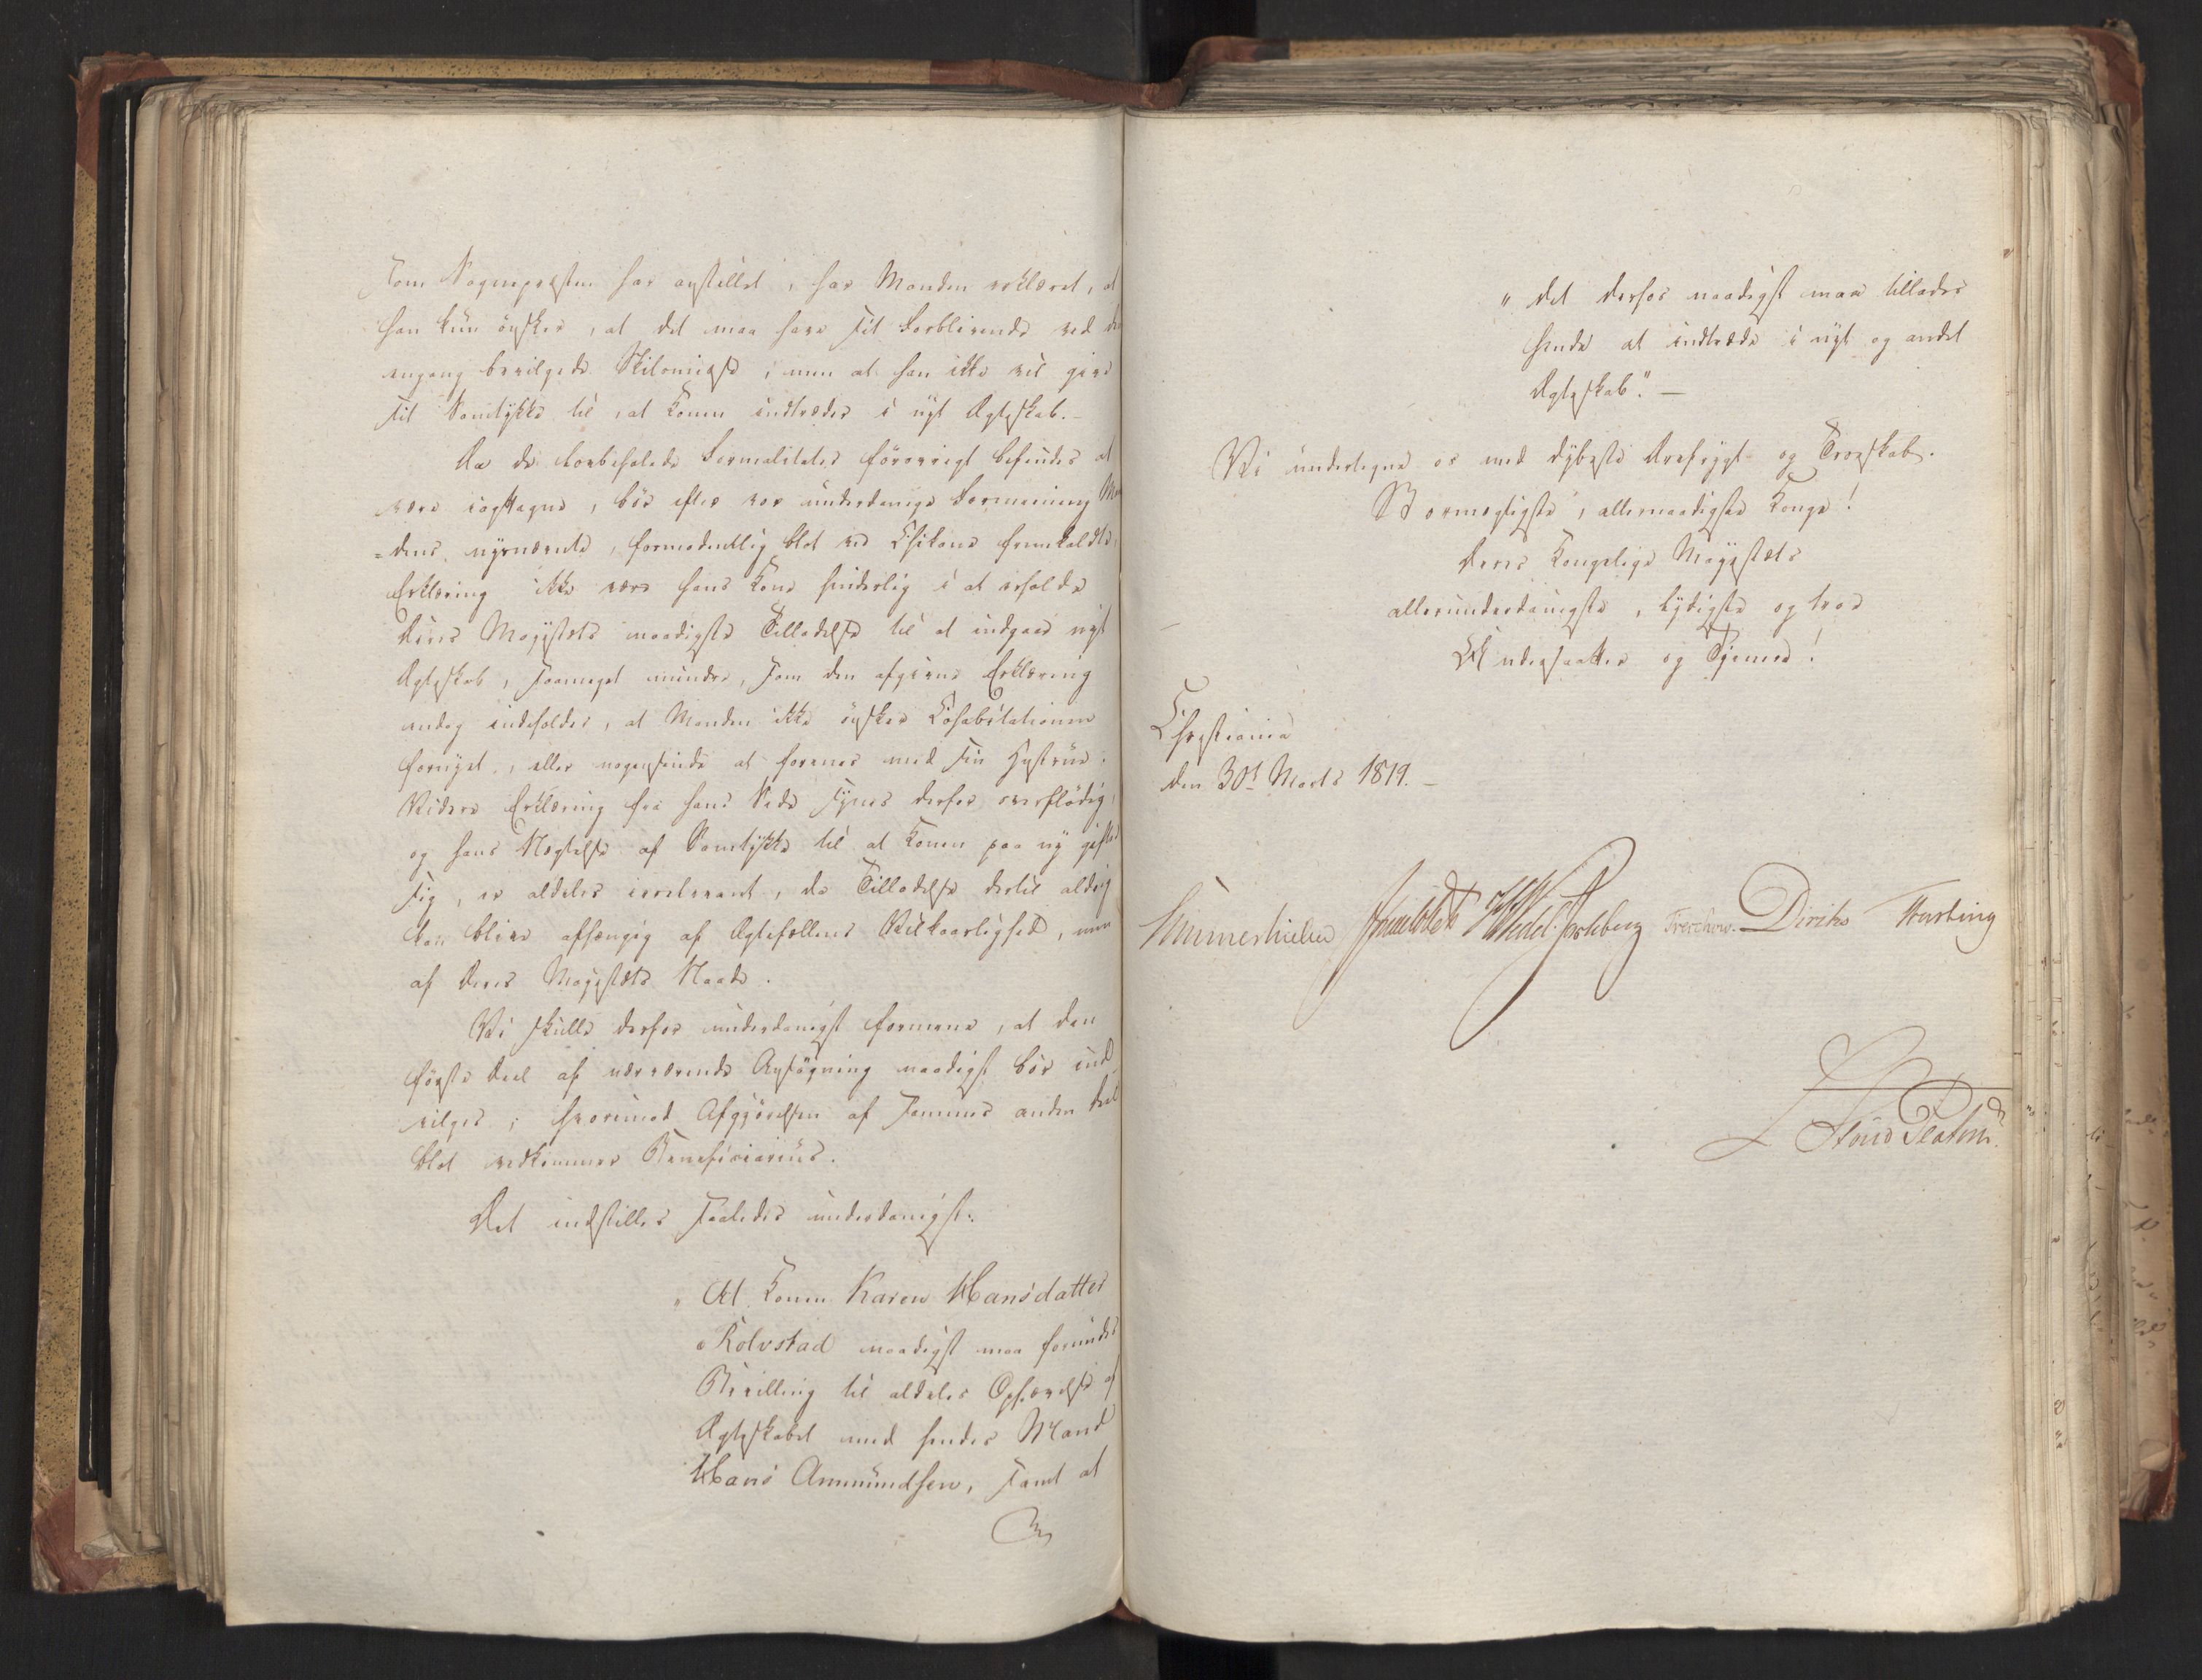 som Sognepræsten har anstillet, har Manden erklæret, at
han kun ønsker, at det maa have sit Forblivende ved den
engang bevilgede Skilsmisse, men at han ikke vil give
sit Samtykke til, at Konen indtræder i nyt Ægteskab. –
Da de forbeholede Formaliteter forövrigt befindes at
være iagttagne, bör efter vor underdanige Formening Man
=dens nysnævnte, formodentlig blot ved Chikane fremkaldte,
Erklæring ikke være hans Kone hinderlig i at erholde
Deres Majestæts naadigste Tilladelse til at indgaae nyt
Ægteskab, saameget mindre, som den afgivne Erklæring
endog indeholder, at Manden ikke önsker Cohabitationen
fornyet, eller nogensinde at forenes med sin Hustrue.
Videre Erklæring fra hans Side synes derfor overflödig,
og hans Nægtelse af Samtykke til at Konen paa ny gifter
sig, er aldeles irrelevant, da Tilladelse dertil aldrig
kan blive afhængig af Ægtefællens Vilkaarlighed, men
af Deres Majestæts Naade.
Vi skulle derfor underdanigst formene, at den
förste Deel af nærværende Ansögning naadigst bör ind
vilges; hvorimod Afgjörelsen af sammes anden Deel
blot vedkommer Beneficiarius.
Det indstilles saaledes underdanigst:
" At Konen Karen Hansdatter
" Kolvstad naadigst maa forundes
Bevilling til aldeles Ophævelse af
Ægteskabet med hendes Mand
Hans Ammundsen, samt at
" det derfor naadigst maa tillades
hende at indtræde i nyt og andet
Ægteskab". –
Vi undertegne os med dybeste Ærefrygt og Troeskab.
Stormægtigste, allernaadigste Konge!
Deres Kongelige Majestæts
allerunderdanigste, lydigste og troe
Undersaatter og Tjenere!
Christiania
den 30t Marts 1819. –
Sommerhielm Wedel-Jarlsberg Treschow. Diriks Fasting
Platou